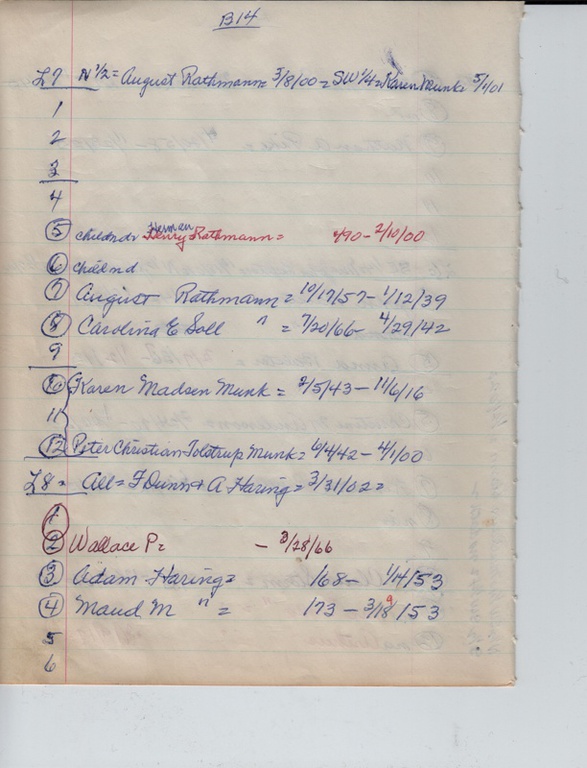 B14
L7 N 1/2 = August Rathmann = 3/8/00 = SW 1/4 = Karen Munk = 5/1/01
1
2
3
4
5 childndr Herman Henry Rathmann = /90 - 2/10/00
6 child nd
7 August Rathmann = 10/17/57 - 1/12/39
8 Carolina E Soll " = 7/20/66 - 4/29/42
9
10 Karen Madsen Munk = 2/5/43 - 11/6/16
11
12 Peter Christian Tolstrup Munk = 6/4/42 - 4/1/00
L8 = All = F Dunn + A Haring = 3/31/02 =
1
2 Wallace P = - 3/28/66
3 Adam Haring = 1/68 - 1/4/53
4 Maud M " = 1/73 - 3/19/53
5
6